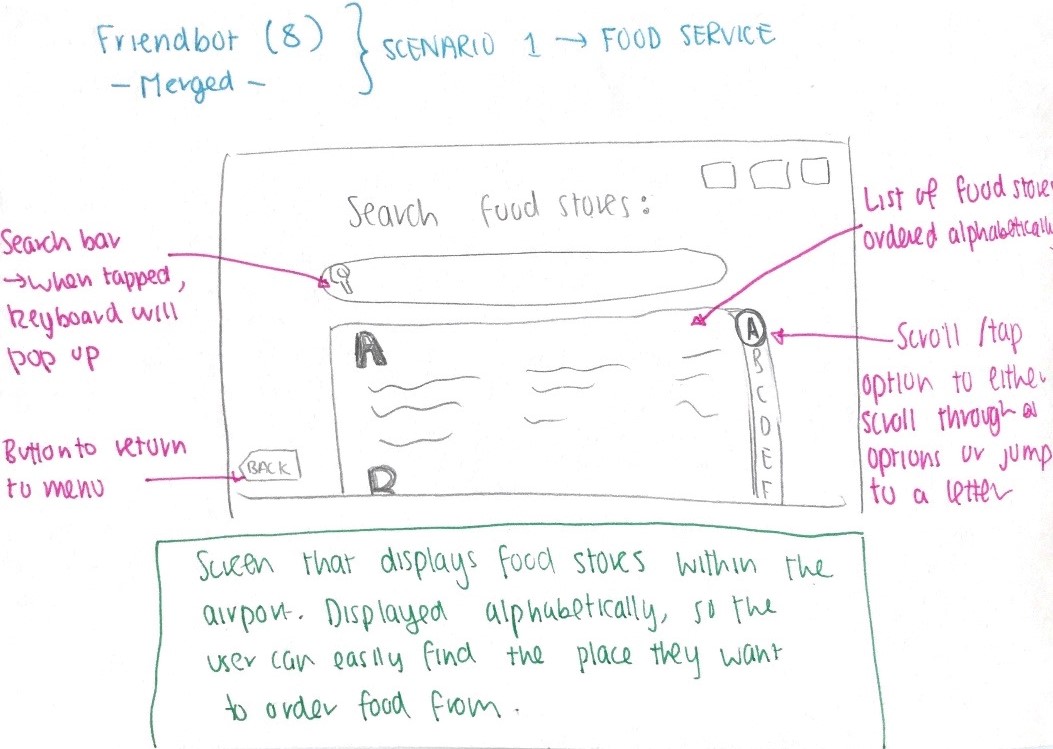 Friendbot (8) } SCENARIO 1 → FOOD SERVICE
- Merged -
Search food stores:
Search bar
→ when tapped,
keyboard will
pop up
List of food stores
ordered alphabetically
A
B
A
B
C
D
E
F
Scroll / tap
option to either
scroll through
options or jump
to a letter
Button to return
to menu
BACK
Screen that displays food stores within the
airport. Displayed alphabetically, so the
user can easily find the place they want
to order food from.